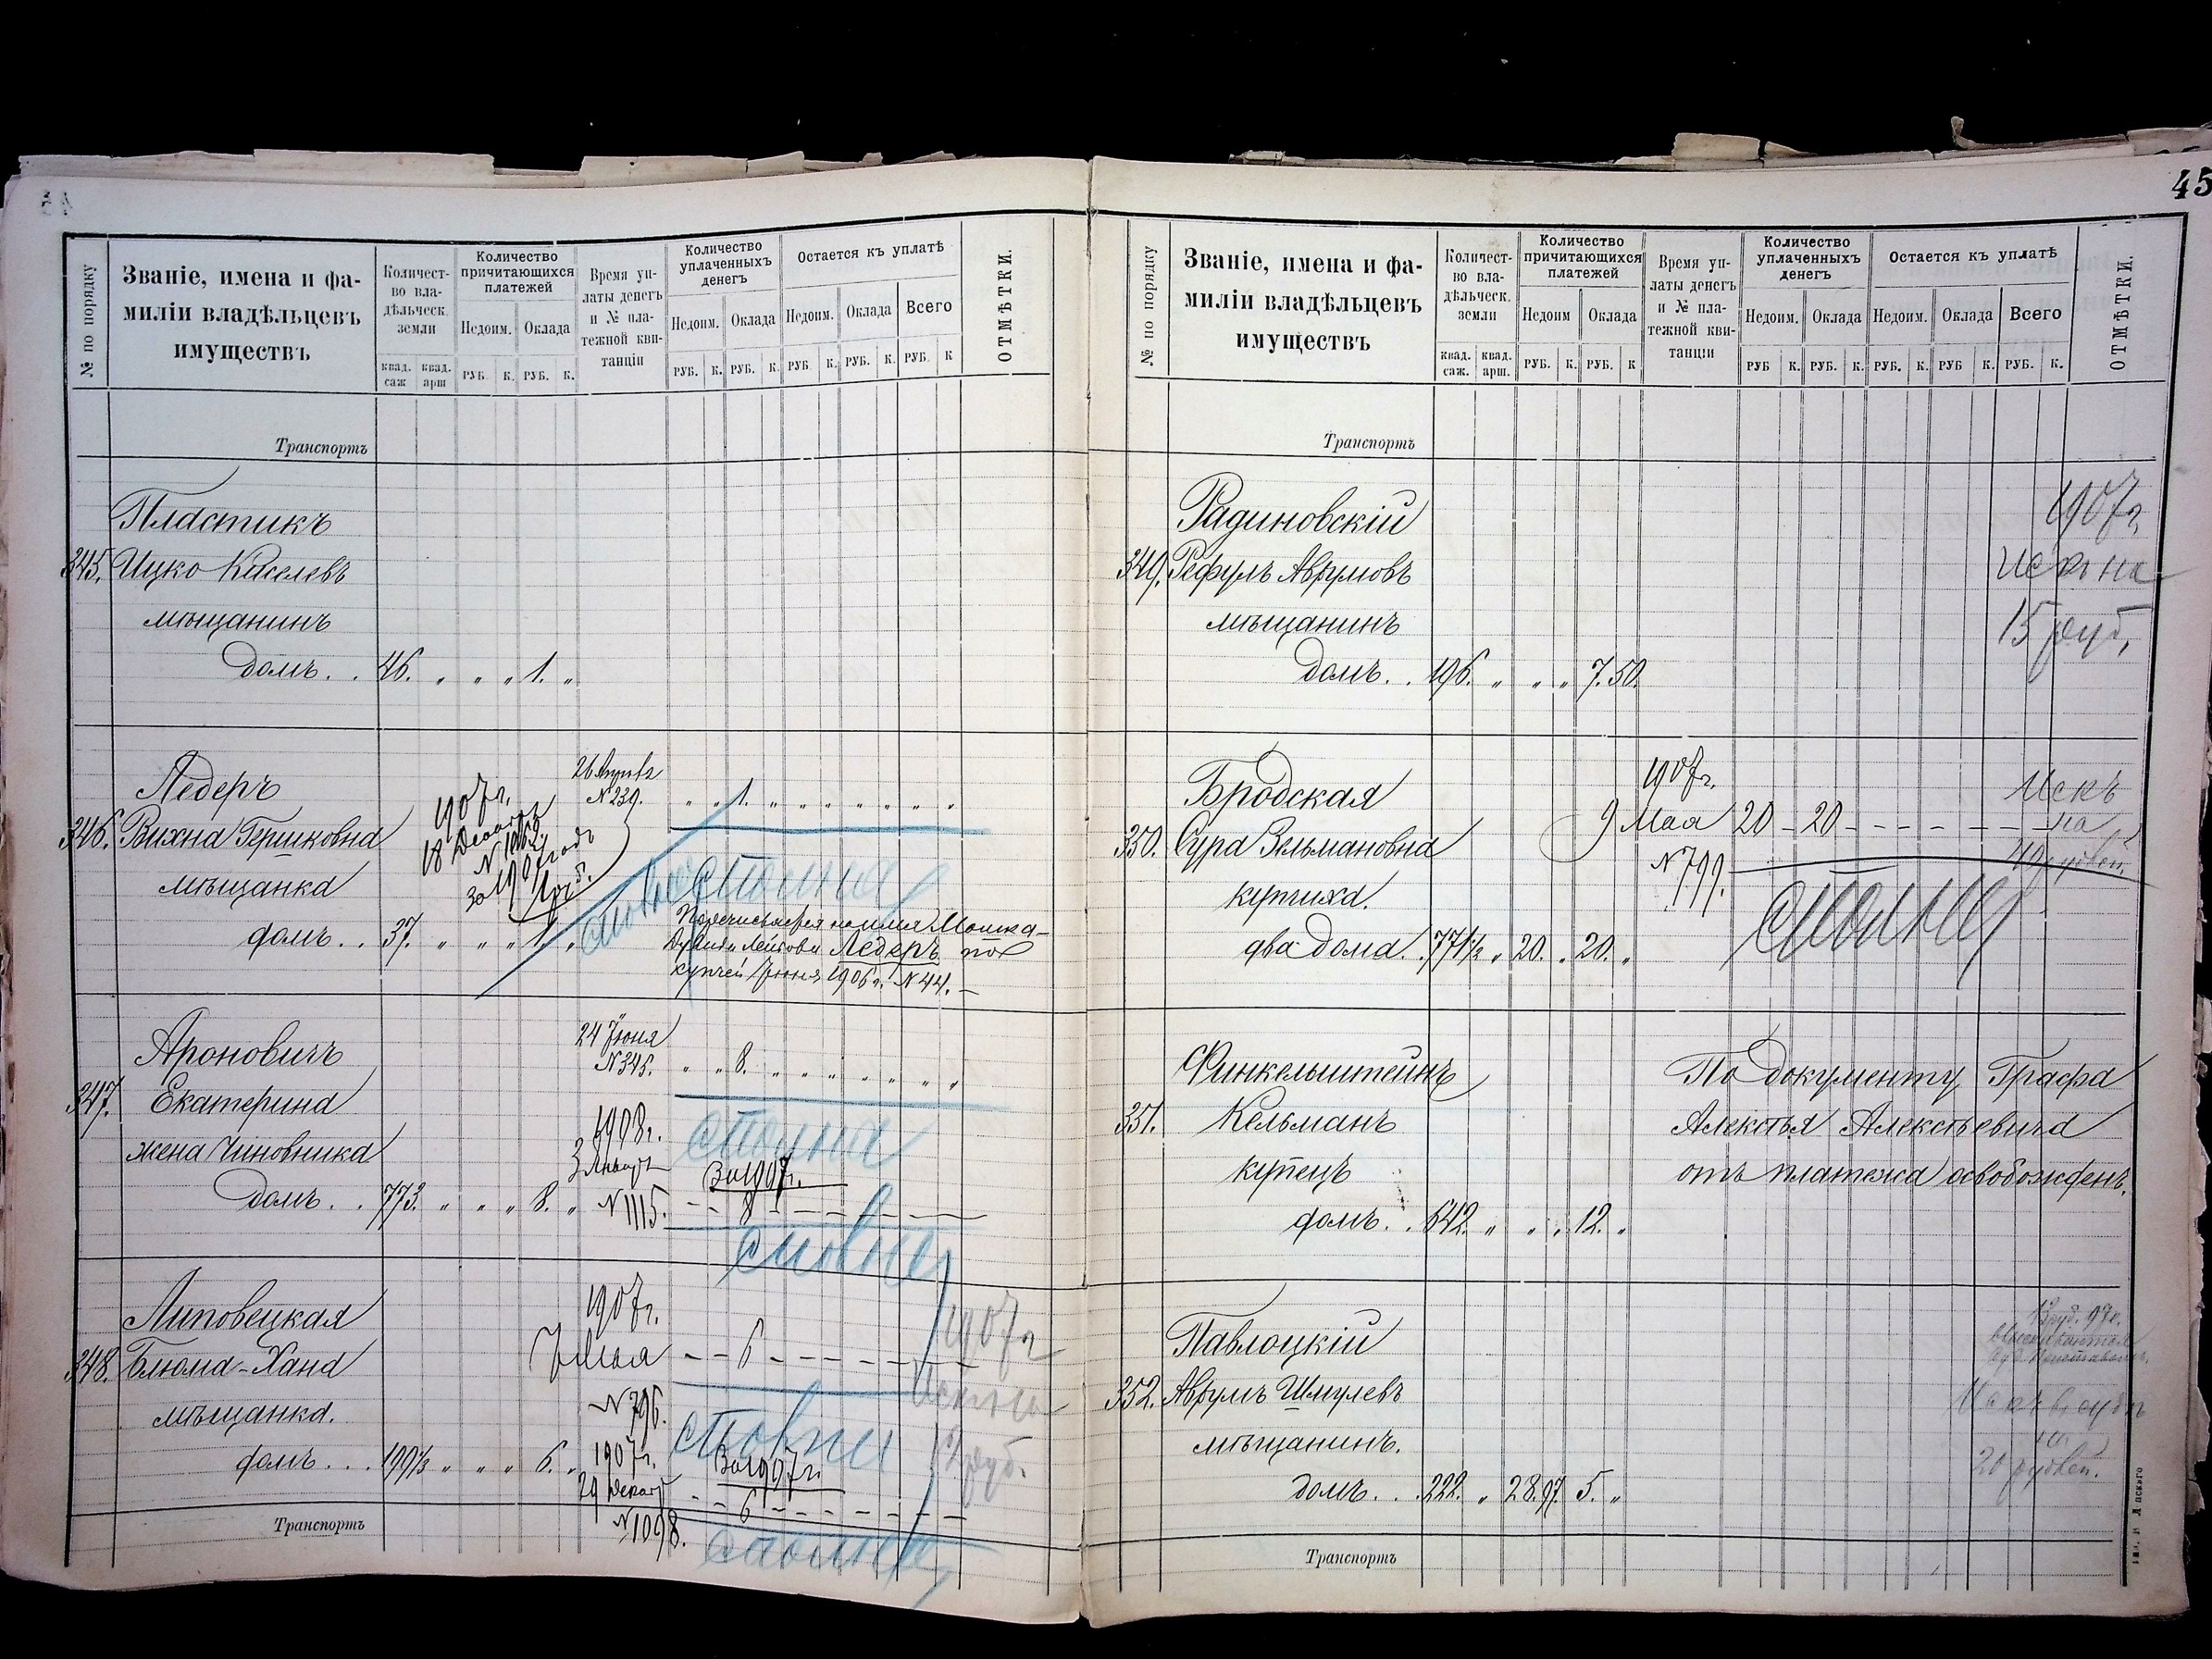 45
№ по порядку
Званіе, имена и фа-
миліи владѣльцевъ
имуществъ
Количест-
во вла-
дѣльческ.
земли
квад. саж
квад. арш
Количество
причитающихся
платежей
Недоим.
Оклада
РУБ. К. РУБ. К.
Время уп-
латы денегъ
и № пла-
тежной кви-
танціи
Количество
уплаченныхъ
денегъ
Недоим.
Оклада
РУБ. К. РУБ. К.
Остается къ уплатѣ
Недоим.
Оклада
Всего
РУБ. К. РУБ. К. РУБ. К
ОТМѢТКИ.
Транспортъ
Пластикъ
345. Ицко Киселевъ
мѣщанинъ
домъ . . 46. „ „ „ 1. „
Ледеръ
346. Вихна Гершковна
мѣщанка
домъ . . 37. „ „ „ 1. „
1907 г.
18 Декабря
N 1052
за 1907 годъ
1 руб.
26 Апрѣля
N 239. „ „ 1. „ „ „ „ „ „ „
сполна
Перечисляется на имя Мошка-
Ледеръ по
купчей Іюня 1906 г. N 44. –
Ароновичъ
347. Екатерина
жена Чиновника
домъ . . 773. „ „ „ 8. „
24 Іюня
N 345. „ „ 8. „ „ „ „ „ „ „
сполна
1908 г.
3 Января
N 1115.
За 1907 г.
– – 8 – – – – – –
сполна
Липовецкая
348. Блюма-Хана
мѣщанка.
домъ . . . 199⅓ „ „ „ 6. „
1907 г.
7 Мая – – 6 – – – – – –
N 796.
сполна
1907 г.
29 Декаб
N 1098.
За 1907 г.
– – 6 – – – – – –
сполна
1907 г
Искъ на
12 руб.
Транспортъ
45
№ по порядку
Званіе, имена и фа-
миліи владѣльцевъ
имуществъ
Количест-
во вла-
дѣльческ.
земли
квад. саж.
квад. арш.
Количество
причитающихся
платежей
Недоим
Оклада
РУБ. К. РУБ. К
Время уп-
латы денегъ
и № пла-
тежной кви-
танціи
Количество
уплаченныхъ
денегъ
Недоим.
Оклада
РУБ К. РУБ. К.
Остается къ уплатѣ
Недоим.
Оклада
Всего
РУБ. К. РУБ К. РУБ. К.
ОТМѢТКИ.
Транспортъ
Радиновскій
349. Рефулъ Аврумовъ
мѣщанинъ
домъ . . 196. „ „ „ 7. 50.
1907 г.
Искъ на
15 руб.
Бродская
350. Сура Зельмановна
купчиха.
два дома. . 771½ „ 20. „ 20. „
1907 г.
9 Мая 20 – 20 – – – – – –
N 799.
сполна
Искъ
на
40 рублей.
Финкельштейнъ
351. Кельманъ
купецъ
домъ . . 642. „ „ „ 12. „
По документу Графа
Алексѣя Алексѣевича
отъ платежа освобожденъ.
Павлоцкій
352. Аврумъ Шмулевъ
мѣщанинъ.
домъ . . . 222. „ 28. 97. 5. „
20 рублей.
Транспортъ